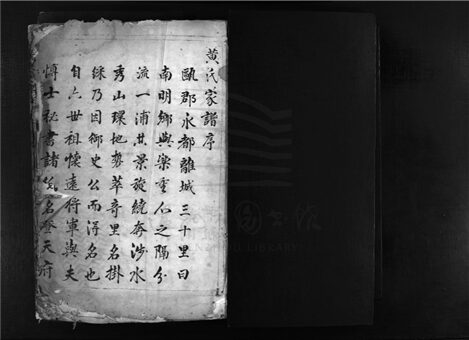 黄氏家譜序
甌郡永都離城三十里曰
南明鄉與樂重分之隔分
流一浦其景旋繞奔涉水
秀山環地勢萃奇里名掛
綵乃因御史公而得名也
自六世祖懷遠将軍與夫
博士秘書諸公名登天府
LIBRARY